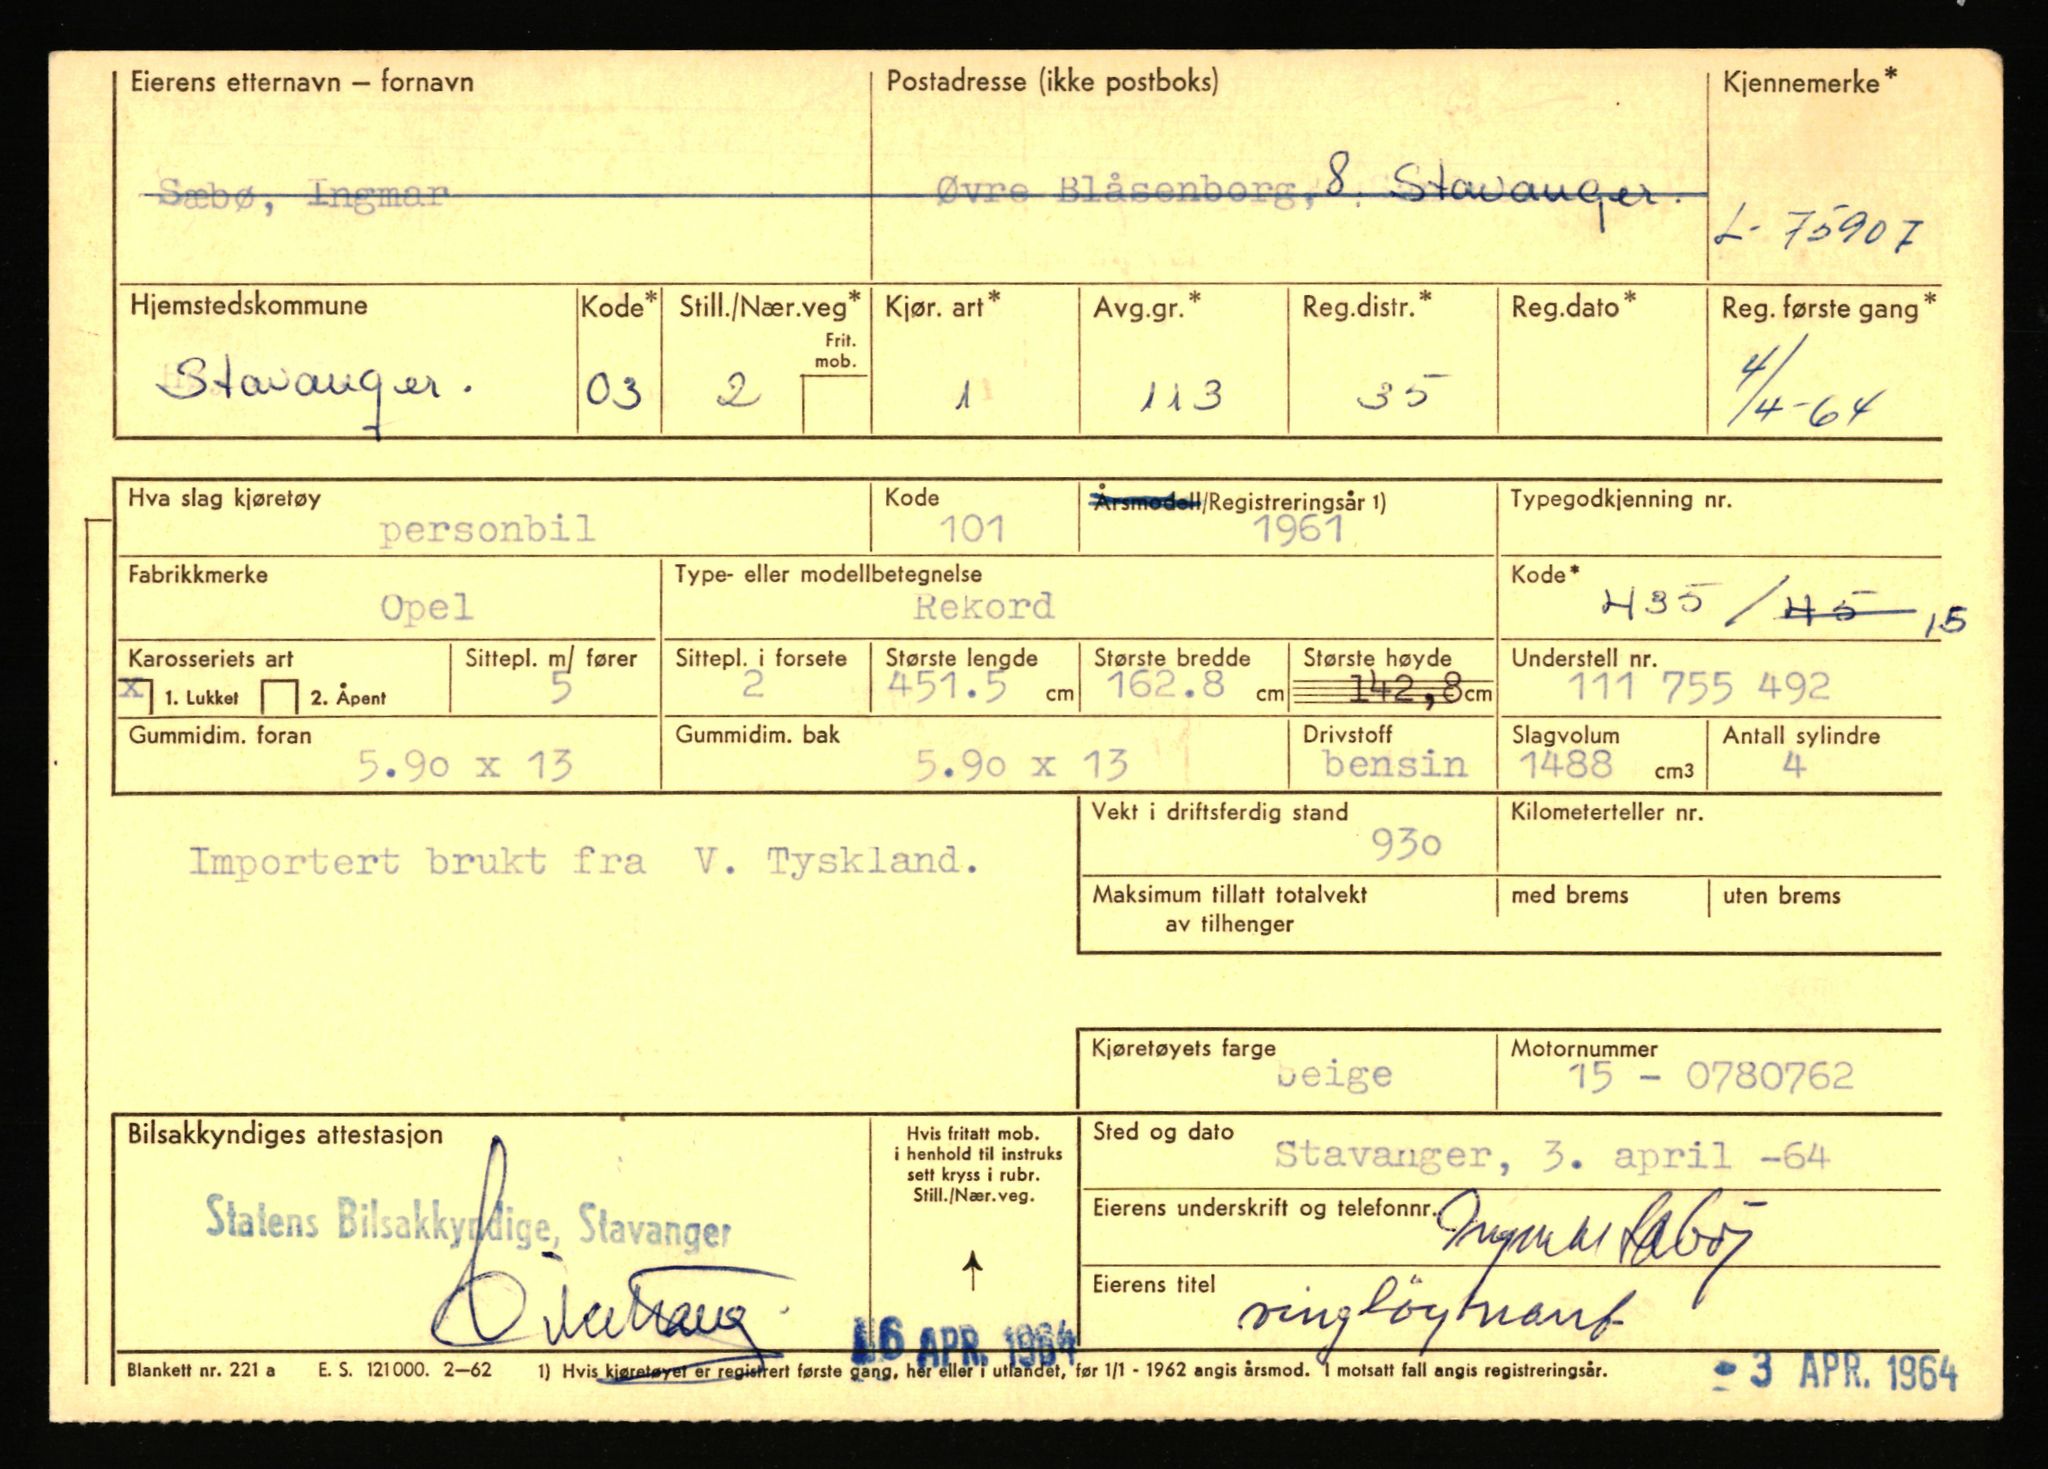 Eierens etternavn – fornavn Postadresse (ikke postboks) Kjennemerke*
Sæbø, Ingmar Øvre Blåsenborg, 8. Stavanger.
L- 75907
Hjemstedskommune Kode* Still./Nær.veg* Kjør. art* Avg.gr.* Reg.distr.* Reg.dato* Reg. første gang*
Frit.
mob.
Stavanger. 03 2 1 113 35 4/4-64
Hva slag kjøretøy Kode Årsmodell/Registreringsår 1) Typegodkjenning nr.
personbil 101 1961
Fabrikkmerke Type- eller modellbetegnelse Kode*
Opel Rekord 435 / 45 15
Karosseriets art Sittepl. m/ fører Sittepl. i forsete Største lengde Største bredde Største høyde Understell nr.
x 1. Lukket 2. Åpent 5 2 451.5 cm 162.8 cm 142,8 cm 111 755 492
Gummidim. foran Gummidim. bak Drivstoff Slagvolum Antall sylindre
5.90 x 13 5.90 x 13 bensin 1488 cm3 4
Vekt i driftsferdig stand Kilometerteller nr.
930
Importert brukt fra V. Tyskland.
Maksimum tillatt totalvekt med brems uten brems
av tilhenger
Kjøretøyets farge Motornummer
beige 15 - 0780762
Bilsakkyndiges attestasjon Hvis fritatt mob. Sted og dato
i henhold til instruks
sett kryss i rubr.
Still./Nær.veg.
Stavanger, 3. april -64
Statens Bilsakkyndige, Stavanger
Eierens underskrift og telefonnr. Ingmar Sæbø
Eierens titel
16 APR. 1964
Blankett nr. 221 a E. S. 121000. 2–62 1) Hvis kjøretøyet er registrert første gang, her eller i utlandet, før 1/1 - 1962 angis årsmod. I motsatt fall angis registreringsår.
- 3 APR. 1964